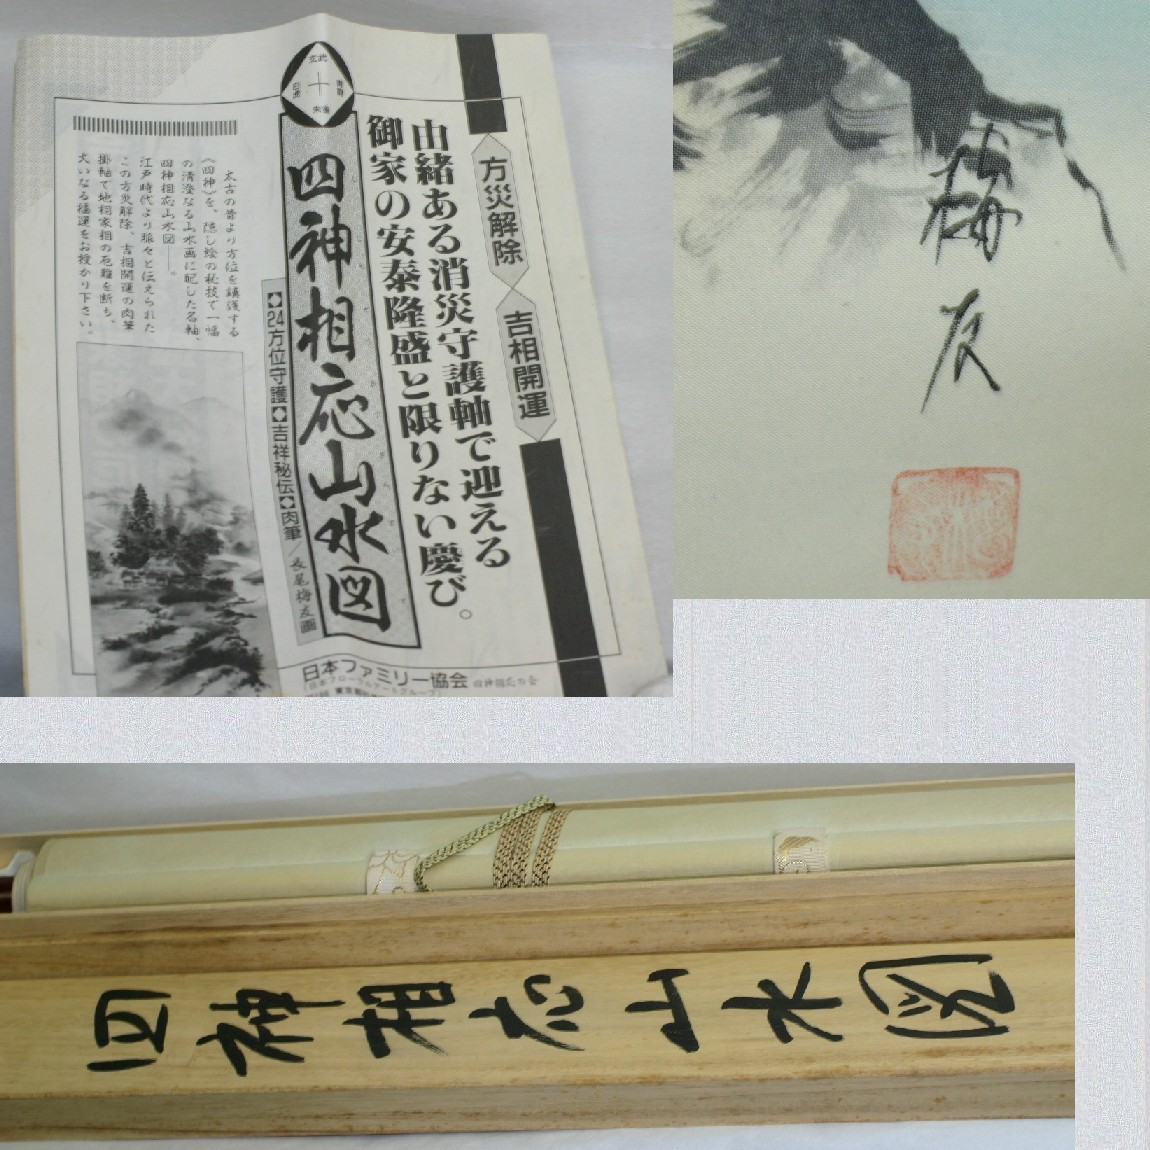 玄武
青龍
白虎
朱雀
方災解除
吉相開運
由緒ある消災守護軸で迎える
御家の安泰隆盛と限りない慶び。
四神相応山水図
24方位守護
吉祥秘伝
肉筆/長尾梅友画
太古の昔より方位を鎮護する
《四神》を、隠し絵の秘技で一幅
の清澄なる山水画に配した名軸、
四神相応山水図――。
江戸時代より脈々と伝えられた
この方災解除、吉相開運の肉筆
掛軸で地相家相の厄難を断ち、
大いなる福運をお授かり下さい。
日本ファミリー協会
梅友
四神相応山水図